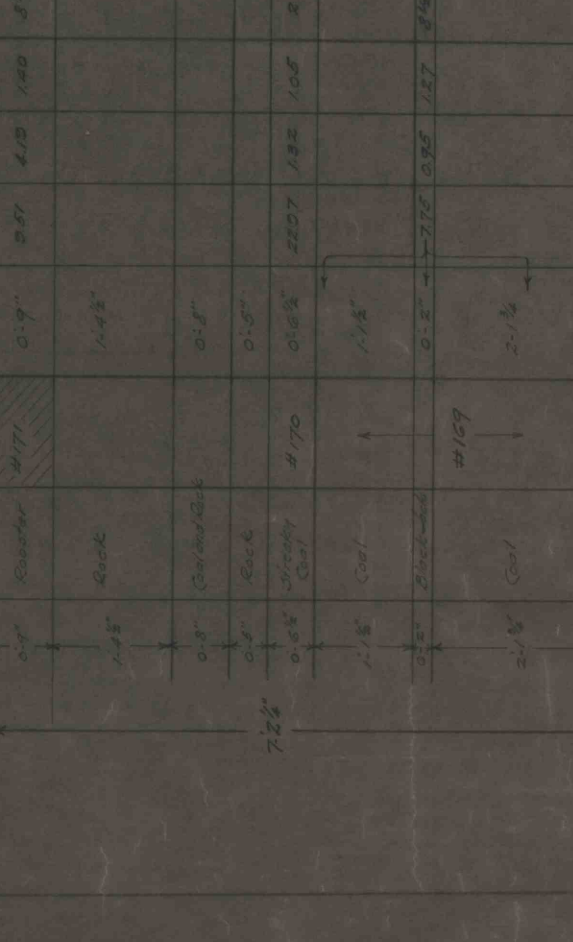 0'-9" Rooster #171 0'-9" 9.51 4.19 1.40 8
1'-4½" Rock 1'-4½"
0'-8" Coal and Rock 0'-8"
0'-5" Rock 0'-5"
0'-6½" Breaker Coal #170 0'-6½" 22.07 1.32 1.05
1'-1½" Coal 1'-1½"
0'-2" Blackjack #169 0'-2" 7.75 0.95 1.27
2'-1¾" Coal 2'-1¾"